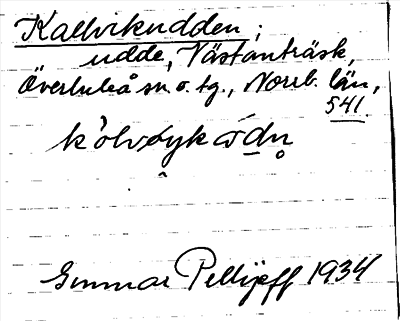 Kallvikudden;
udde, Västanträsk,
Överluleå sn o. tg., Norrb. län,
541.
Gunnar Pellijeff 1934